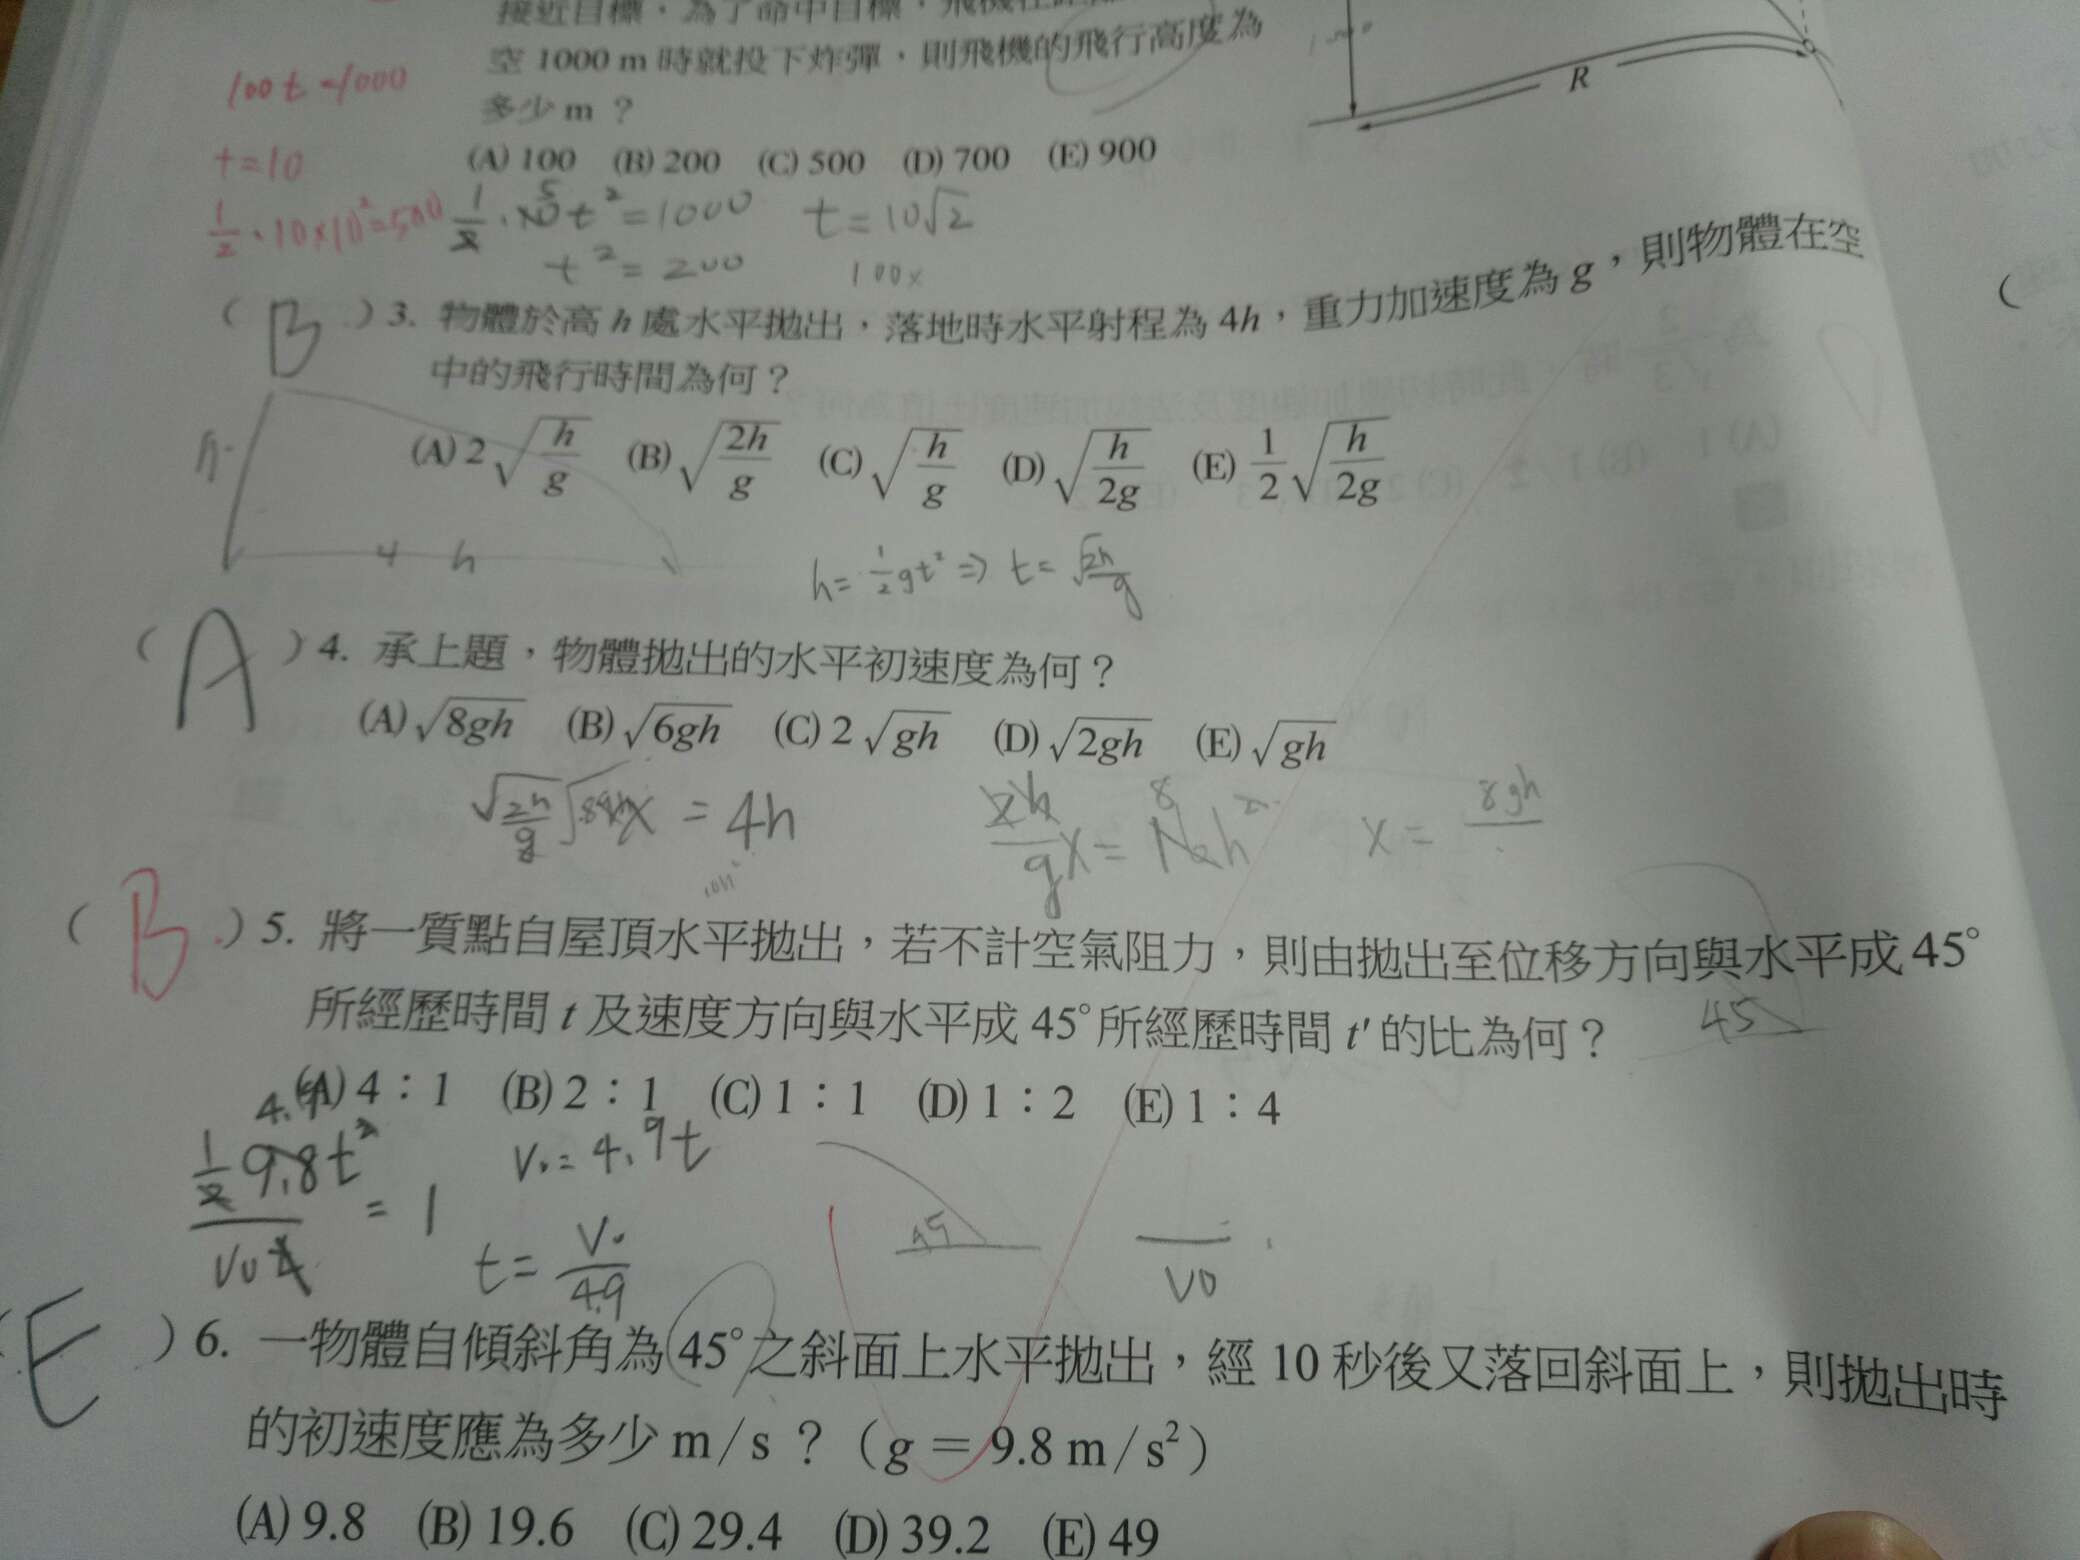 接近目標，為了命中目標，飛機在
空 1000 m 時就投下炸彈，則飛機的飛行高度為
多少 m ？
(A) 100 (B) 200 (C) 500 (D) 700 (E) 900
R
100t=1000
t=10
1/2·10×10²=500
1/2·10t²=1000 t=10√2
5
t²=200 100x
( B ) 3. 物體於高 h 處水平拋出，落地時水平射程為 4h，重力加速度為 g，則物體在空
中的飛行時間為何？
(A) 2√(h/g) (B) √(2h/g) (C) √(h/g) (D) √(h/2g) (E) 1/2 √(h/2g)
h
4 h
h=1/2gt² ⇒ t=√(2h/g)
( A ) 4. 承上題，物體拋出的水平初速度為何？
(A) √8gh (B) √6gh (C) 2√gh (D) √2gh (E) √gh
√(2h/g) = 4h
2h/g x= 8 h² x= 8gh
( B ) 5. 將一質點自屋頂水平拋出，若不計空氣阻力，則由拋出至位移方向與水平成 45°
所經歷時間 t 及速度方向與水平成 45° 所經歷時間 t′ 的比為何？
45
(A) 4：1 (B) 2：1 (C) 1：1 (D) 1：2 (E) 1：4
4.9
1/2 9.8t² / V0t = 1
V0=4.9t
t=V0/4.9
45
V0
( E ) 6. 一物體自傾斜角為 45° 之斜面上水平拋出，經 10 秒後又落回斜面上，則拋出時
的初速度應為多少 m/s ？（g＝9.8 m/s²）
(A) 9.8 (B) 19.6 (C) 29.4 (D) 39.2 (E) 49